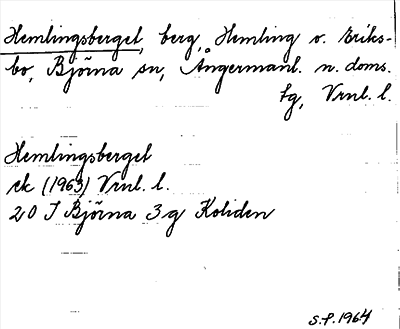 Hemlingsberget, berg, Hemling o. Eriks-
bo, Björna sn, Ångermanl. n. doms.
tg, Vrnl. l.
Hemlingsberget
ek (1963) Vrnl. l.
20 J Björna 3 g Koliden
S.F. 1964